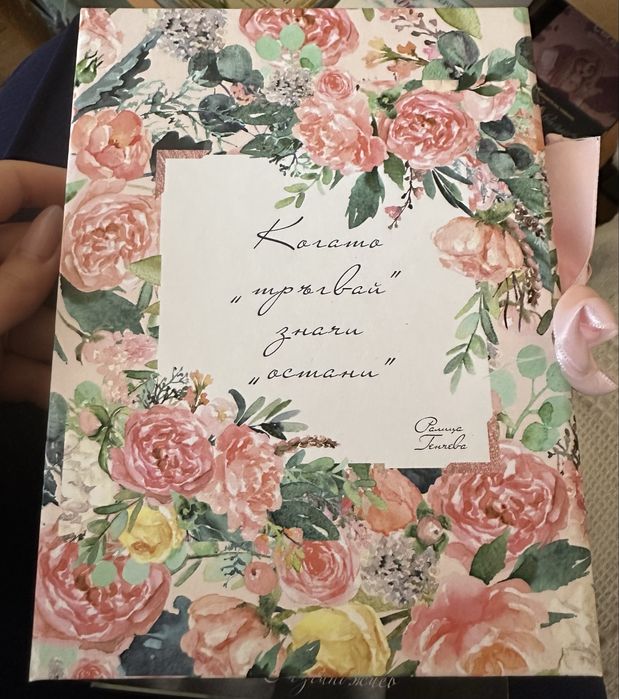 Когато
„тръгвай“
значи
„остани“
Ралица
Генчева